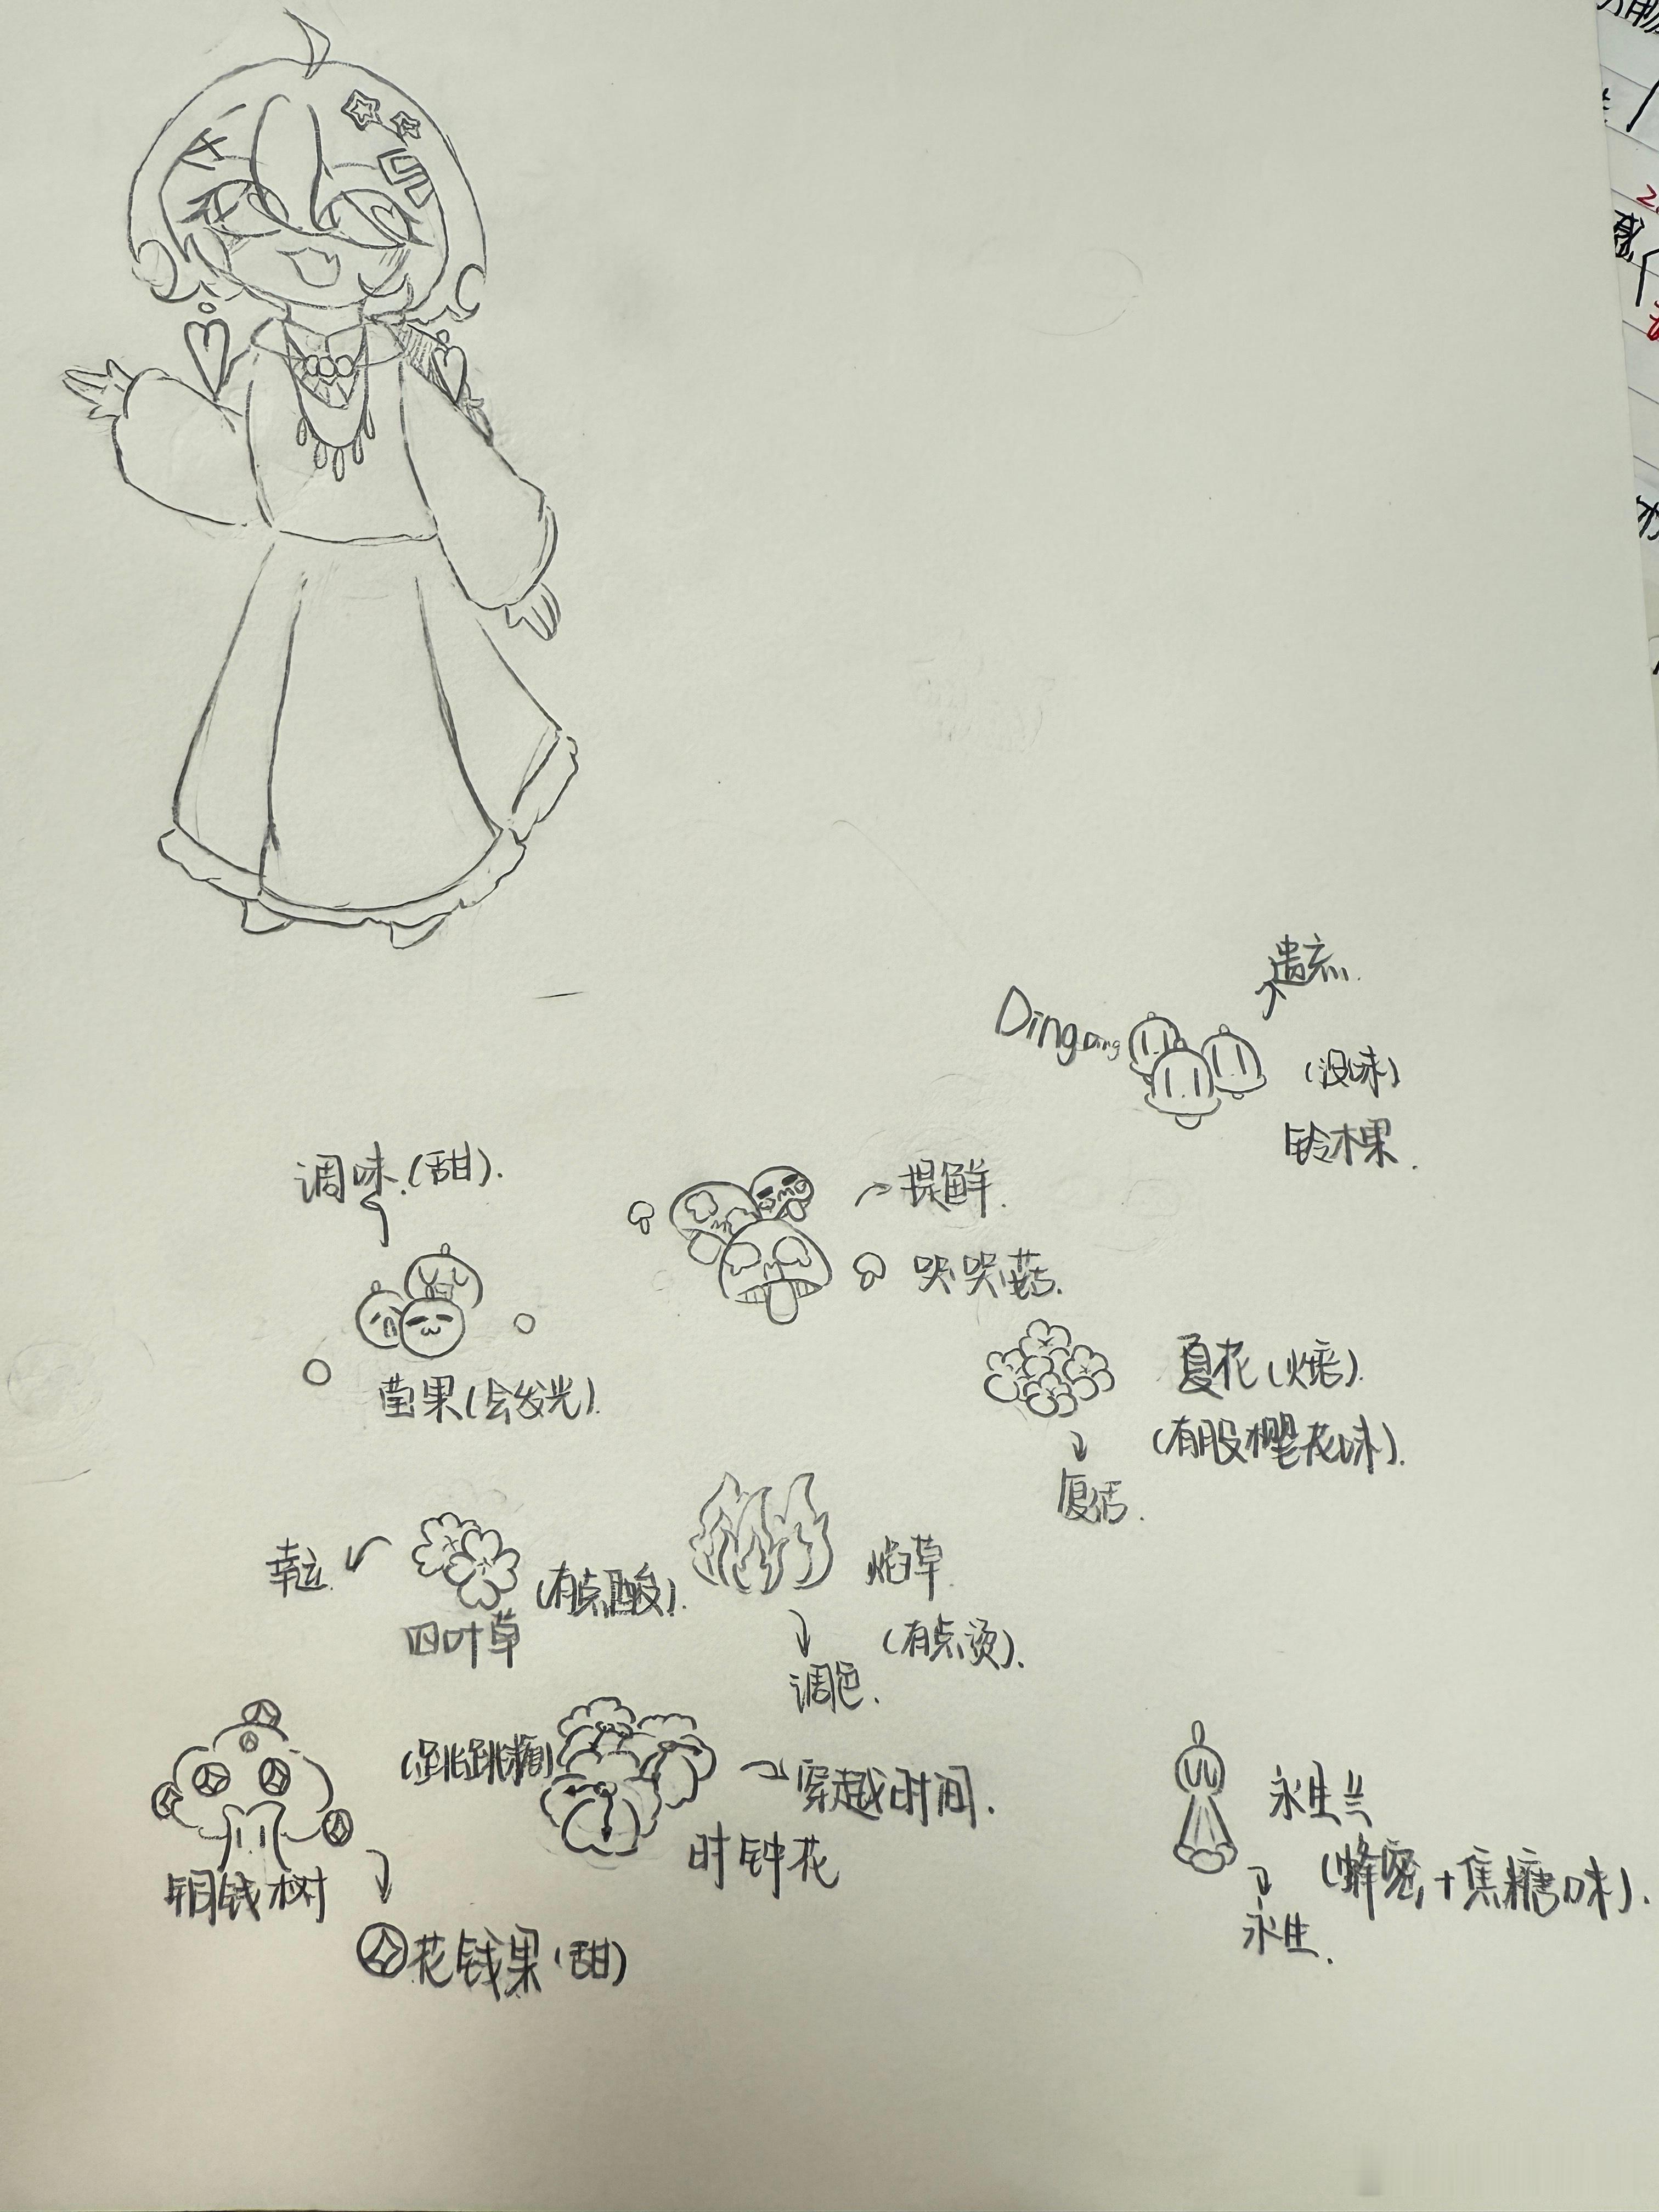 遗忘.
Ding Ding
(没味)
铃木果.
调味.(甜).
提鲜.
哭哭菇.
莹果(会发光).
夏花(焙).
(有股樱花味).
复活.
幸运.
(有点酸).
四叶草
焰草.
(有点烫).
调色.
(跳跳糖)
穿越时间.
时钟花
铜钱树
花钱果(甜)
永生兰
(蜂蜜+焦糖味).
永生.